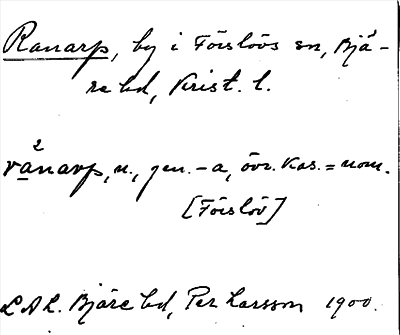 Ranarp, by i Förslövs sn, Bjä-
re hd, Krist. l.
2
rånarp, n., gen. -a, övr. kas. = nom.
[Förslöv]
LAL. Bjäre hd, Per Larsson 1900.